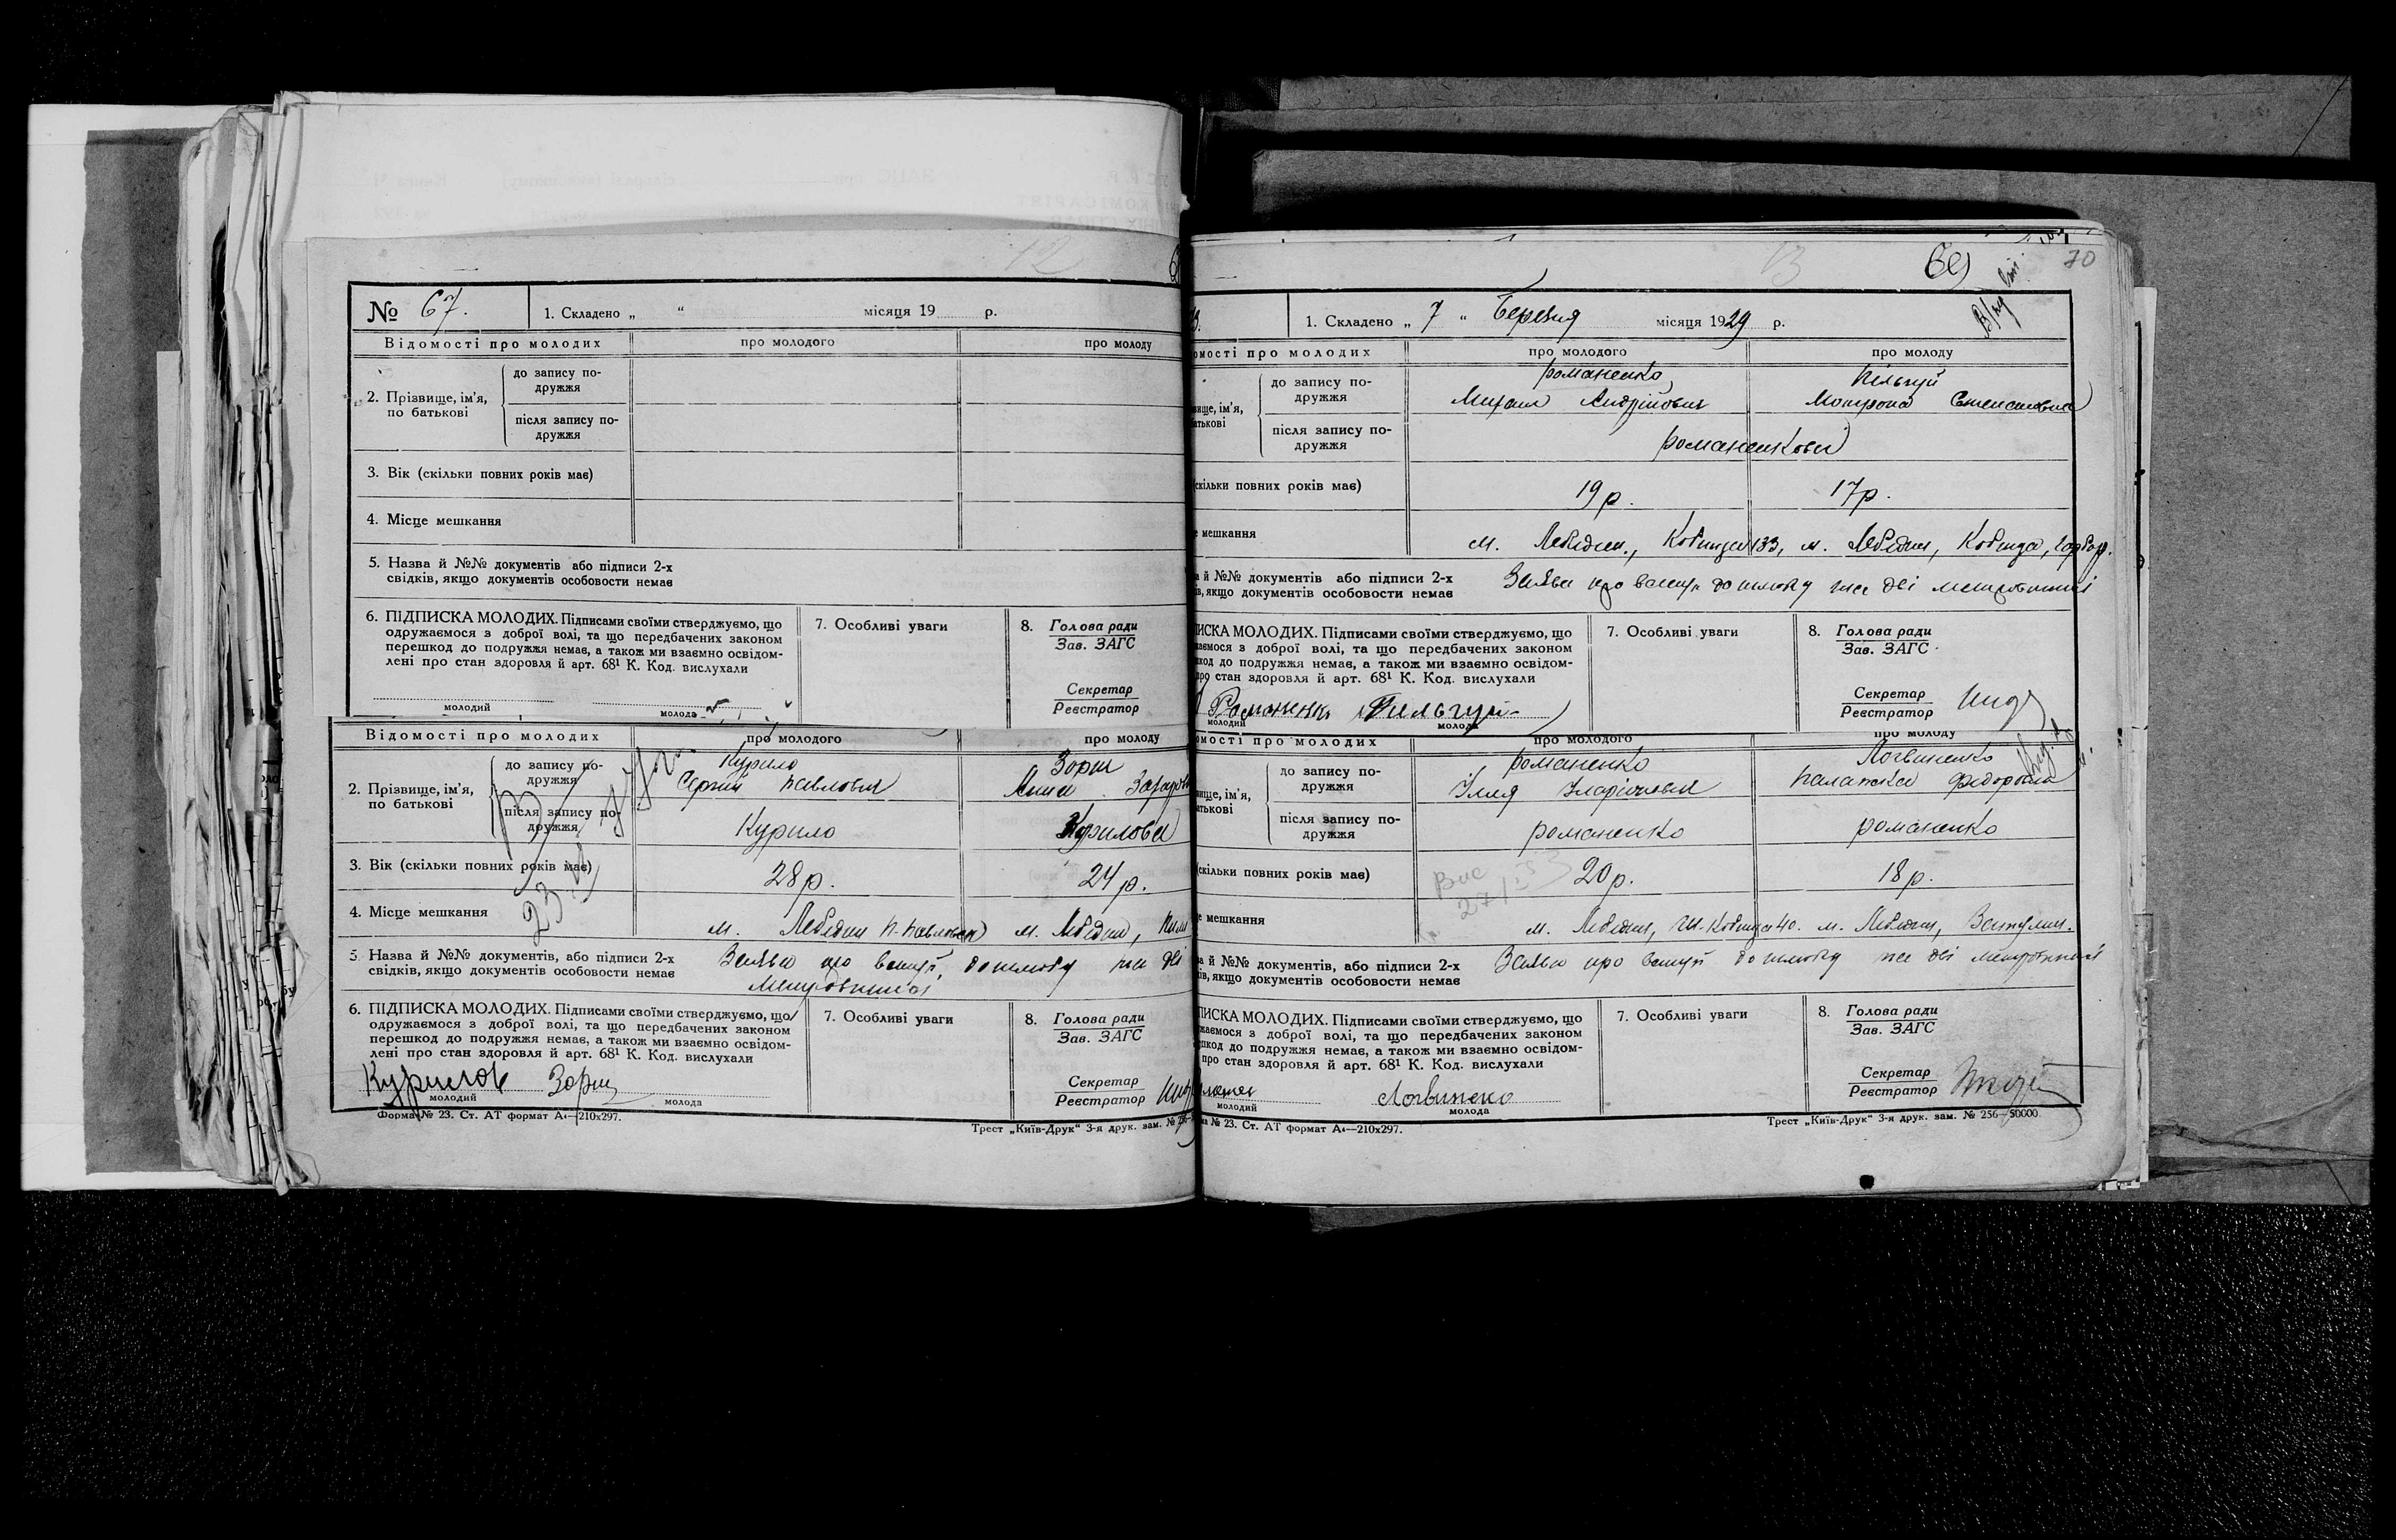 № 67. 1. Складено „ “ місяця 19 р.
Відомості про молодих про молодого про молоду
2. Прізвище, ім'я, по батькові
до запису по-
дружжя
після запису по-
дружжя
3. Вік (скільки повних років має)
4. Місце мешкання
5. Назва й №№ документів або підписи 2-х
свідків, якщо документів особовости немає
6. ПІДПИСКА МОЛОДИХ. Підписами своїми стверджуємо, що
одружаємося з доброї волі, та що передбачених законом
перешкод до подружжя немає, а також ми взаємно освідом-
лені про стан здоровля й арт. 68¹ К. Код. вислухали
молодий молода
7. Особливі уваги
8. Голова ради
Зав. ЗАГС
Секретар
Реєстратор
Відомості про молодих про молодого про молоду
2. Прізвище, ім'я, по батькові
до запису по-
дружжя
Курило Зорш
Сергій Павлович Анна
після запису по-
дружжя
Курило Курилова
3. Вік (скільки повних років має) 28 р. 24 р.
4. Місце мешкання м. Лебедин м. Лебедин,
5. Назва й №№ документів, або підписи 2-х
свідків, якщо документів особовости немає
6. ПІДПИСКА МОЛОДИХ. Підписами своїми стверджуємо, що
одружаємося з доброї волі, та що передбачених законом
перешкод до подружжя немає, а також ми взаємно освідом-
лені про стан здоровля й арт. 68¹ К. Код. вислухали
Курилов Зорш
молодий молода
7. Особливі уваги
8. Голова ради
Зав. ЗАГС
Секретар
Реєстратор
Форма № 23. Ст. АТ формат А4—210x297.
Трест „Київ-Друк“ 3-я друк. зам. №
69 70
1. Складено „ 7 “ Березня місяця 1929 р.
омості про молодих про молодого про молоду
вище, ім'я,
атькові
до запису по-
дружжя
Романенко Пільгуй
Михаил Андрійович Мотрона Степановна
після запису по-
дружжя
Романенкови
скільки повних років має) 19 р. 17 р.
е мешкання м. Лебедин, Кобища 133, м. Лебедин, Кобища,
а й №№ документів або підписи 2-х
ів, якщо документів особовости немає
Заява про вступ до шлюбу
ПИСКА МОЛОДИХ. Підписами своїми стверджуємо, що
жаємося з доброї волі, та що передбачених законом
код до подружжя немає, а також ми взаємно освідом-
про стан здоровля й арт. 68¹ К. Код. вислухали
Романенко Пильгуй
молодий молода
7. Особливі уваги
8. Голова ради
Зав. ЗАГС
Секретар
Реєстратор
омості про молодих про молодого про молоду
вище, ім'я,
атькові
до запису по-
дружжя
Романенко Логвиненко
Ілля Іларіонович Палажка Федоровна
після запису по-
дружжя
Романенко Романенко
скільки повних років має) 20 р. 18 р.
е мешкання м. Лебедин, м. Лебедин,
а й №№ документів, або підписи 2-х
ів, якщо документів особовости немає
Заява про вступ до шлюбу
ПИСКА МОЛОДИХ. Підписами своїми стверджуємо, що
жаємося з доброї волі, та що передбачених законом
шкод до подружжя немає, а також ми взаємно освідом-
про стан здоровля й арт. 68¹ К. Код. вислухали
Логвиненко
молодий молода
7. Особливі уваги
8. Голова ради
Зав. ЗАГС
Секретар
Реєстратор
ма № 23. Ст. АТ формат А4—210x297.
Трест „Київ-Друк“ 3-я друк. зам. № 256—50000.